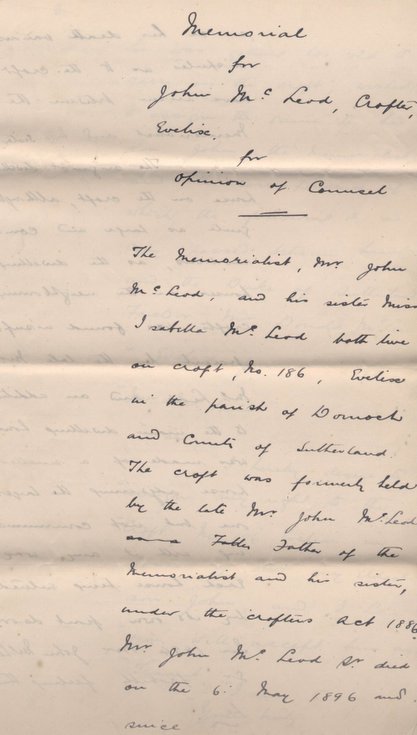 Memorial
for
John Mc Leod, Crofter,
Evelix,
for
Opinion of Counsel
The Memorialist, Mr. John
Mc Leod, and his sister Miss
Isabella Mc Leod both live
on croft, No. 186, Evelix
in the parish of Dornoch
and County of Sutherland.
The croft was formerly held
by the late Mr. John McLeod
Father of the
Memorialist and his sister,
under the crofters Act 1886.
Mr John McLeod Sr. died
on the 6. May 1896 and
since